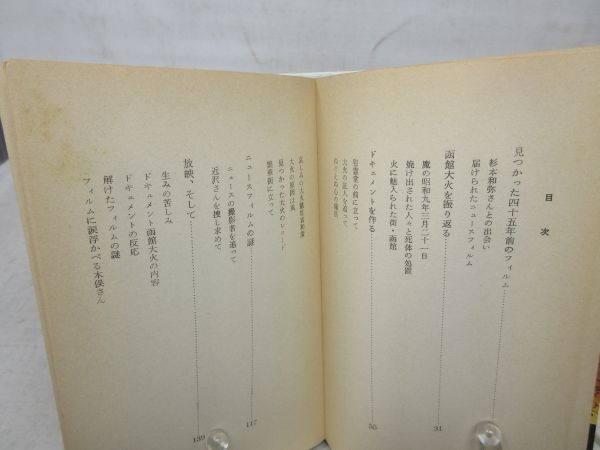 目次
見つかった四十五年前のフィルム
杉本和弥さんとの出会い
届けられたニュースフィルム
函館大火を振り返る 31
魔の昭和九年三月二十一日
焼け出された人々と死体の処置
火に魅入られた街・函館
ドキュメントを作る 55
慰霊堂の前に立って
大火の証人を追って
大火の原因は風
見つかった大火のレコード
繁華街に立って
ニュースフィルムの謎 117
ニュースの撮影者を追って
近沢さんを捜し求めて
放映、そして 139
生みの苦しみ
ドキュメント函館大火の内容
ドキュメントの反応
解けたフィルムの謎
フィルムに涙浮かべる木俣さん